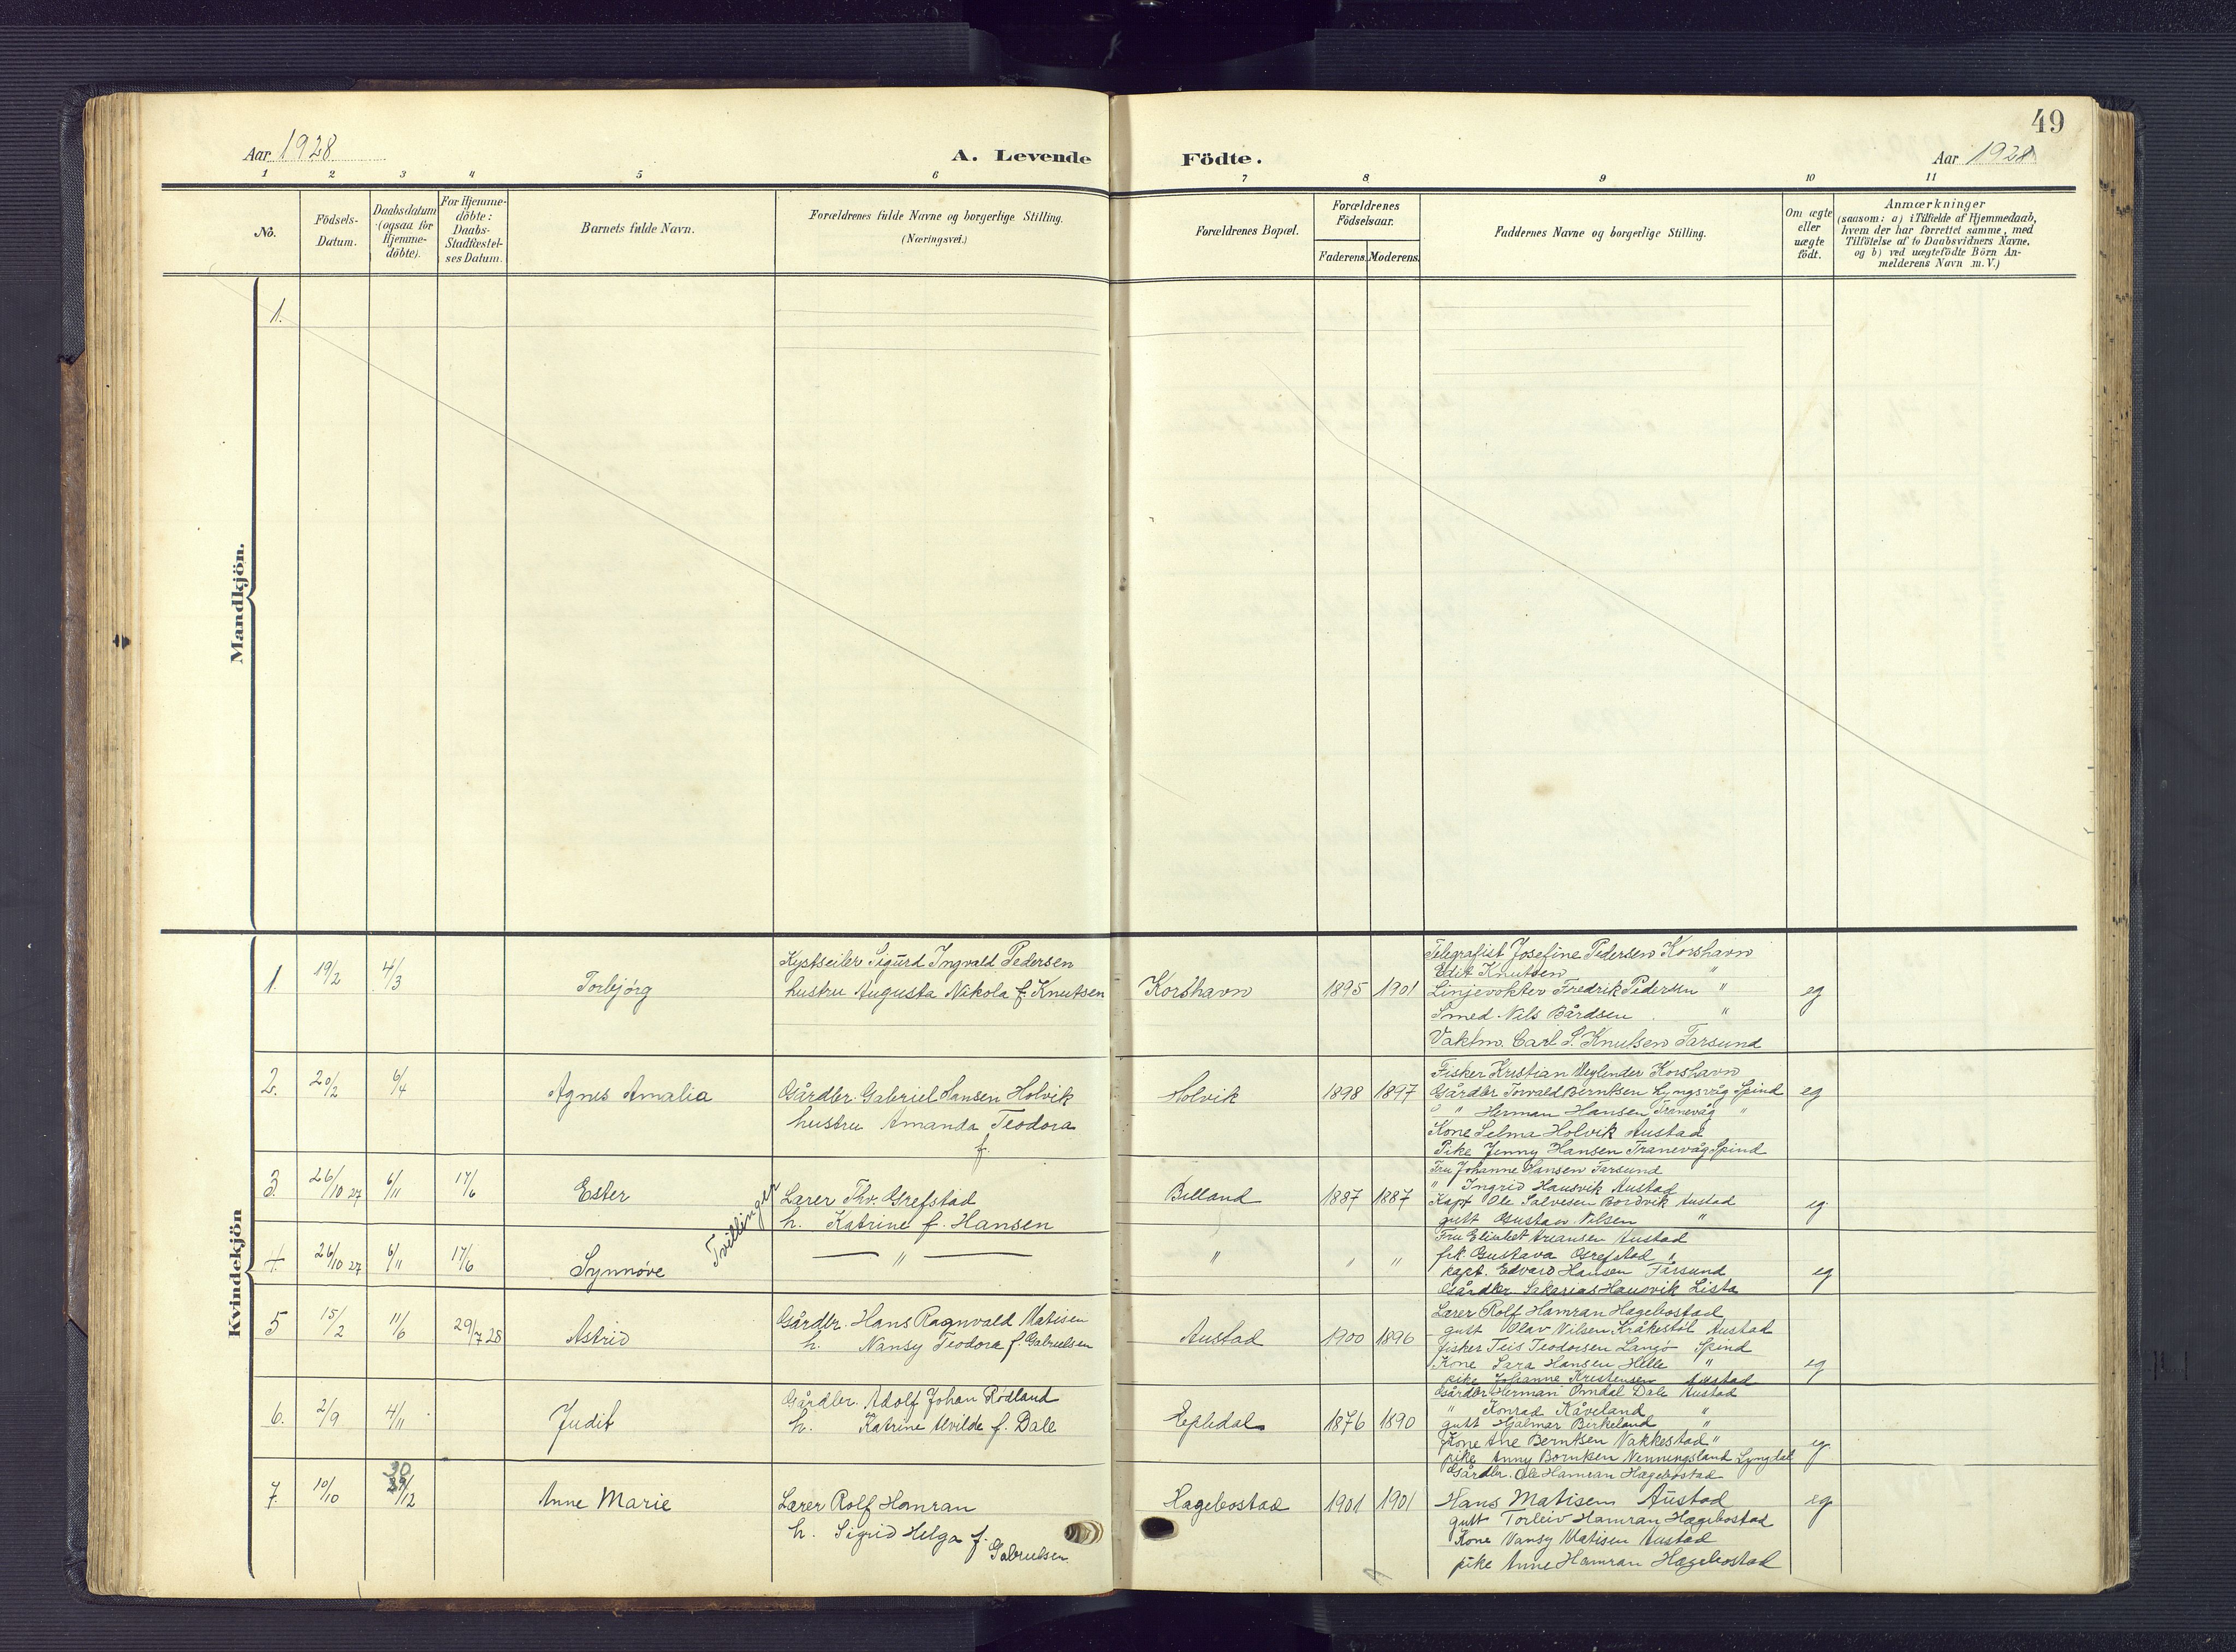 49
Aar 1928
A. Levende Födte.
Aar 1928
1 2 3 4 5 6 7 8 9 10 11
No.
Födsels-
Datum.
Daabsdatum
(ogsaa for
Hjemme-
döbte).
For Hjemme-
döbte:
Daabs-
Stadfæstel-
ses Datum.
Barnets fulde Navn.
Forældrenes fulde Navne og borgerlige Stilling.
(Næringsvei.)
Forældrenes Bopæl.
Forældrenes
Födselsaar.
Faderens. Moderens.
Faddernes Navne og borgerlige Stilling.
Om ægte
eller
uægte
födt.
Anmærkninger
(saasom: a) i Tilfælde af Hjemmedaab,
hvem der har forrettet samme, med
Tilföielse af to Daabsvidners Navne,
og b) ved uægtefödte Börn An-
melderens Navn m. V.)
Mandkjön.
1.
Kvindekjön
1. 19/2 4/3 Torbjørg
Kystseiler Sigurd Ingvald Pedersen
hustru Augusta Nikola f. Knutsen
Korshavn 1895 1901
Telegrafist Josefine Pedersen Korshavn
Edit Knutsen "
Linjevokter Fredrik Pedersen "
Smed Nils Bårdsen "
Vaktm. Carl S. Knutsen Farsund
eg
2. 20/2 6/4 Agnes Amalia
Gårdbr. Gabriel Hansen Holvik
hustru Amanda Teodora
f.
Holvik 1898 1897
Fisker Kristian Veglinder Korshavn
Gårdbr Torvald Berntsen Lyngsvåg Spind
" Herman Hansen Tranevåg "
Kone Selma Holvik Austad
Pike Jenny Hansen Tranevåg Spind
eg
3. 26/10 27 6/11 17/6 Ester
Tvillinger
Lærer Thv. Grefstad
h. Katrine f. Hansen
Billand 1887 1887
Fru Johanne Hansen Farsund
" Ingrid Hausvik Austad
Kapt Ole Salvesen Bordvik Austad
gutt Gustav Nilsen "
eg
4. 26/10 27 6/11 17/6 Synnøve
— " —
" " "
Fru Elisabet Ariansen Austad
frk. Gustava Grefstad "
kapt. Edvard Hansen Farsund
Gårdbr Sakarias Hausvik Lista
eg
5 15/2 11/6 29/7 28 Astrid
Gårdbr. Hans Ragnvald Matisen
h. Nansy Teodora f. Gabrielsen
Austad 1900 1896
Lærer Rolf Hamran Hægebostad
gutt Olav Nilsen Kråkestøl Austad
fisker Teis Teodorsen Langø Spind
Kone Sara Hansen Helle "
pike Johanne Kristensen Austad
eg
6. 2/9 4/11 Judit
Gårdbr. Adolf Johan Rødland
h. Katrine Alvilde f. Dale
Epledal 1876 1890
Gårdbr Herman Omdal Dale Austad
" Konrad Kåveland "
gutt Hjalmar Birkeland "
Kone Ane Berntsen Vakkestad "
pike Anny Berntsen Venningsland Lyngdal
eg
7. 10/10 30/12 Anne Marie
Lærer Rolf Hamran
h. Sigrid Helga f.
Gabrielsen
Hægebostad 1901 1901
Gårdbr. Ole Hamran Hægebostad
Hans Matisen Austad
gutt Torleiv Hamran Hægebostad
Kone Nansy Matisen Austad
pike Anne Hamran Hægebostad
eg